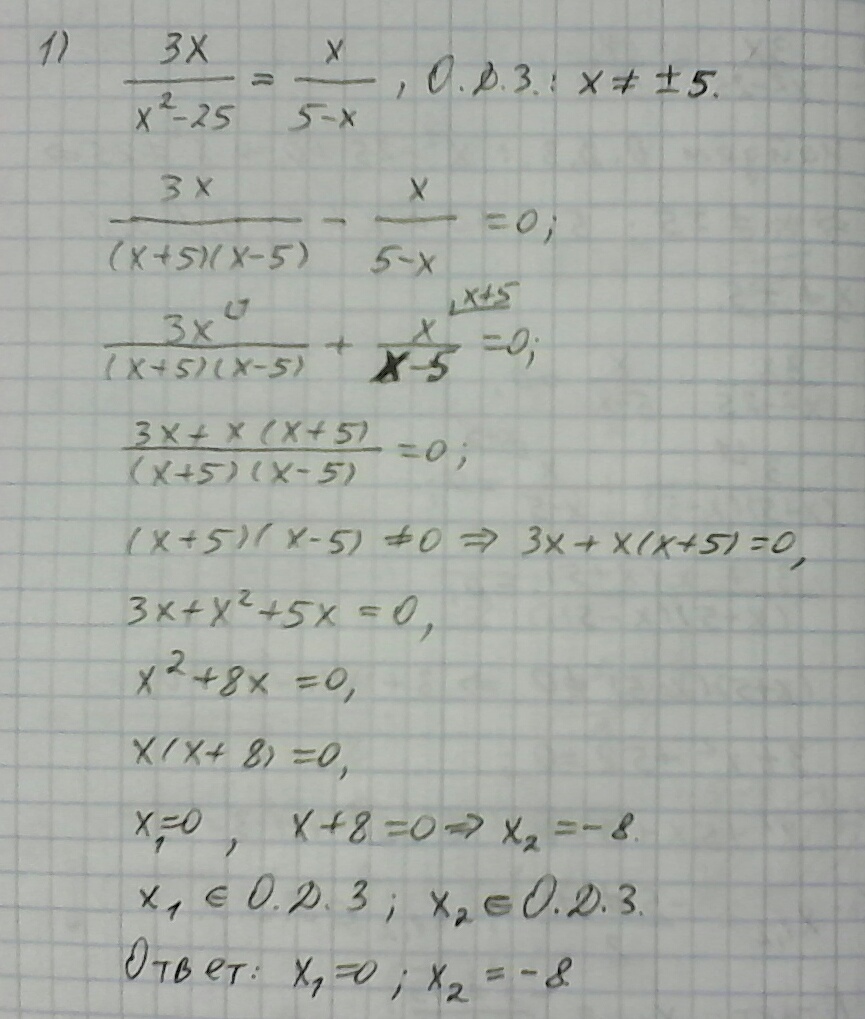 1) 3x / (x²-25) = x / (5-x) , О.Д.З.: x ≠ ±5.
3x / ((x+5)(x-5)) - x / (5-x) = 0;
3x / ((x+5)(x-5)) + x ⌊x+5 / (x-5) = 0;
(3x + x(x+5)) / ((x+5)(x-5)) = 0;
(x+5)(x-5) ≠ 0 ⇒ 3x + x(x+5) = 0,
3x + x² + 5x = 0,
x² + 8x = 0,
x(x+8) = 0,
x₁=0 , x+8=0 ⇒ x₂ = -8.
x₁ ∈ О.Д.З ; x₂ ∈ О.Д.З.
Ответ: x₁=0 ; x₂ = -8